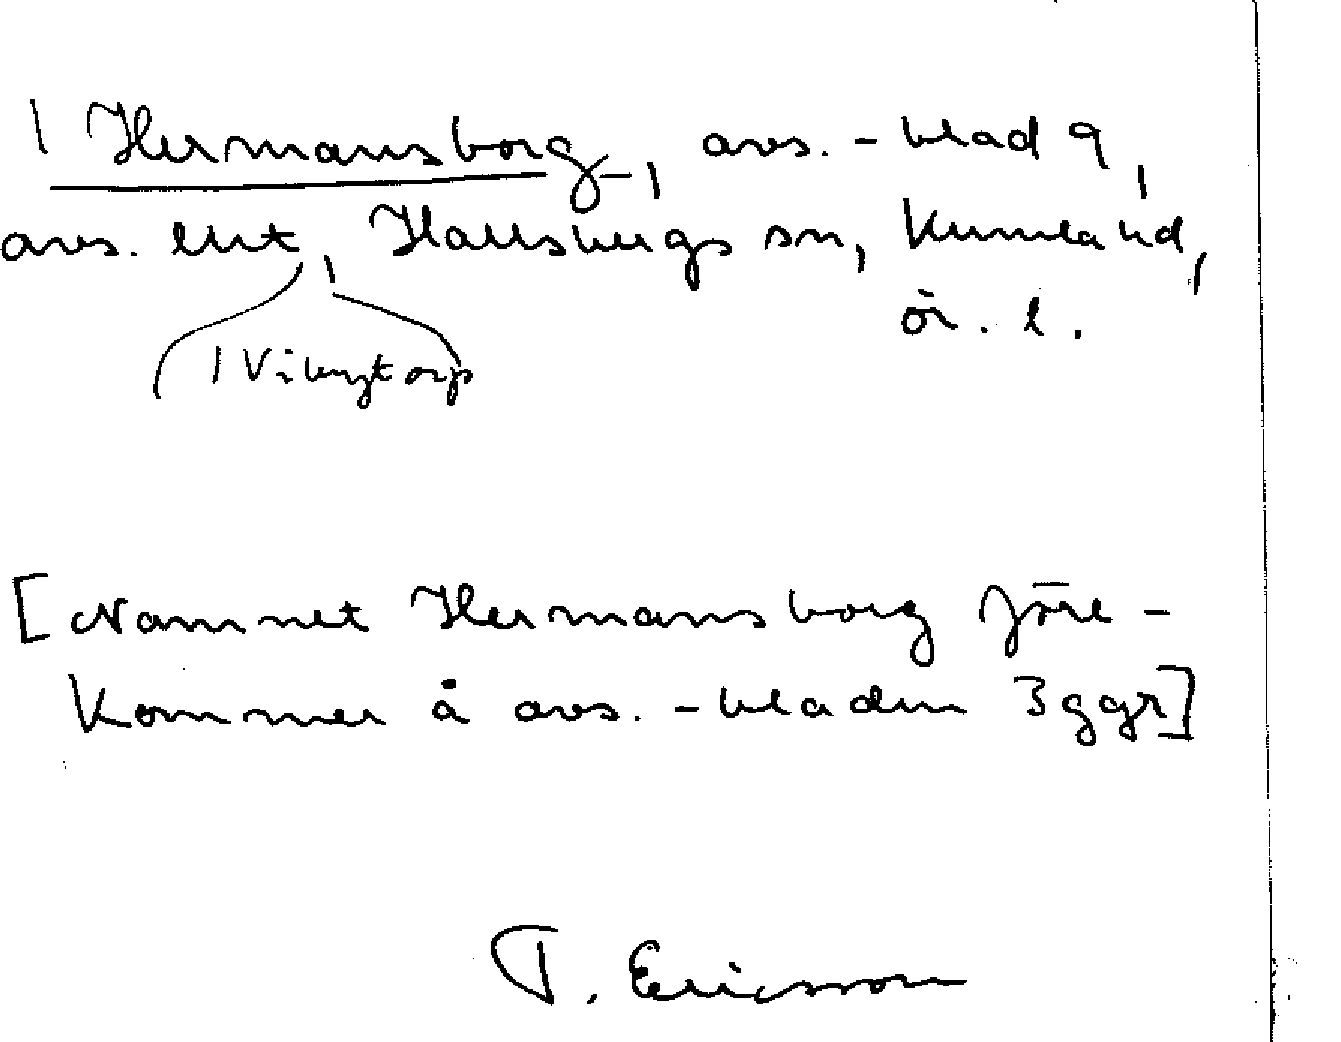 \ Hermansborg, avs.-blad 9,
avs. lht, Hallsbergs sn, Kumla hd,
ör. l.
/ Vibytorp
[Namnet Hermansborg före-
kommer å avs.-bladen 3 ggr]
T. Ericsson